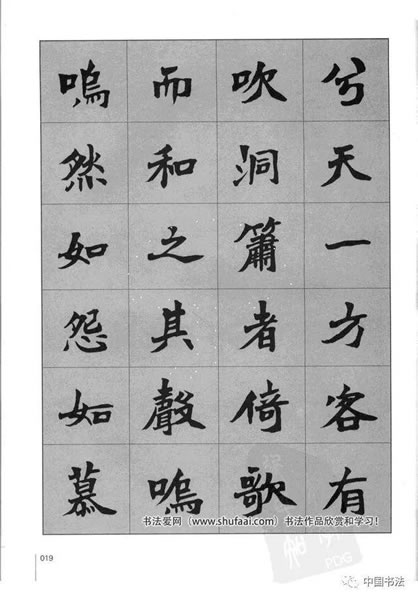 兮天一方客有
吹洞簫者倚歌
而和之其聲嗚
嗚然如怨如慕
书法爱网（www.shufaai.com）书法作品欣赏和学习！
019
PDG
中国书法